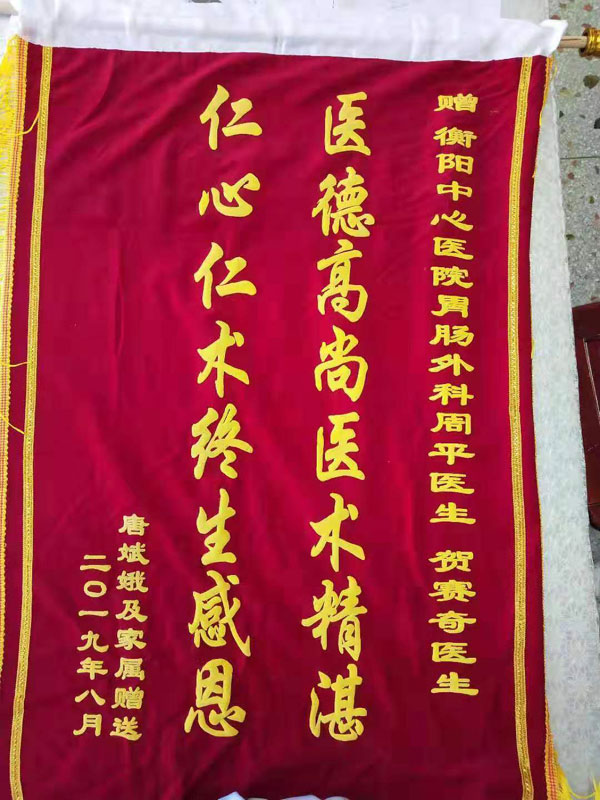 赠 衡阳中心医院胃肠外科周平医生 贺赛奇医生
医德高尚医术精湛
仁心仁术终生感恩
唐斌娥及家属赠送
二〇一九年八月